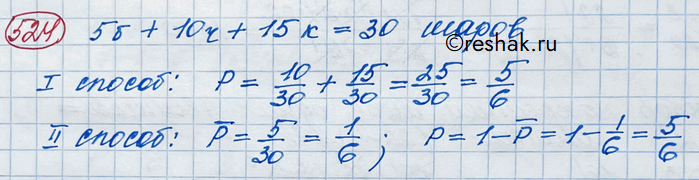 524 5б + 10ч + 15к = 30 шаров
©reshak.ru
I способ: P = 10/30 + 15/30 = 25/30 = 5/6
II способ: P̅ = 5/30 = 1/6; P = 1 - P̅ = 1 - 1/6 = 5/6